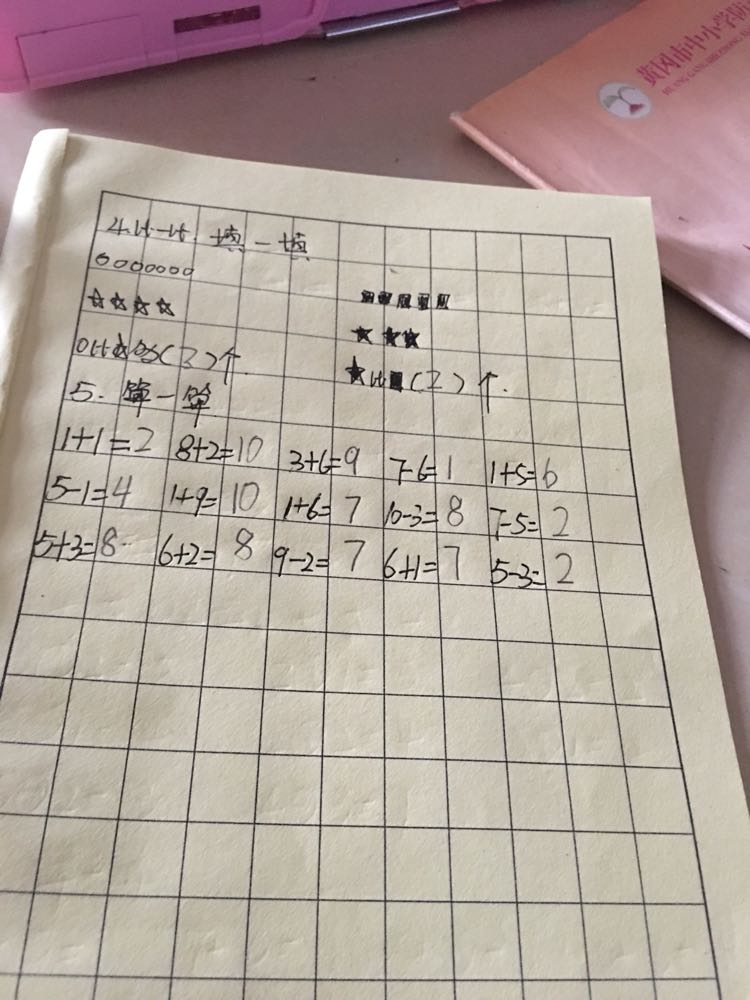 黄冈市中小学防
4.比一比.填一填
○○○○○○○
☆☆☆☆
■■■■■
★★★
○比☆多(3)个.
★比■(2)个.
5.算一算
1+1=2 8+2=10 3+6=9 7-6=1 1+5=6
5-1=4 1+9=10 1+6=7 10-3=8 7-5=2
5+3=8 6+2=8 9-2=7 6+1=7 5-3=2